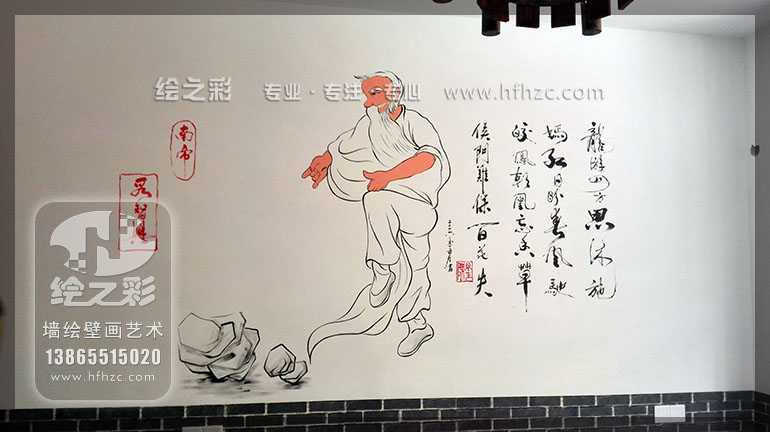 绘之彩 专业·专注·专心 www.hfhzc.com
南帝
段智兴
龍遊四方思沐施
嫣紅日盼春風駛
皎鳳朝凰忘至草
侯門難保百花失
绘之彩
墙绘壁画艺术
13865515020
www.hfhzc.com